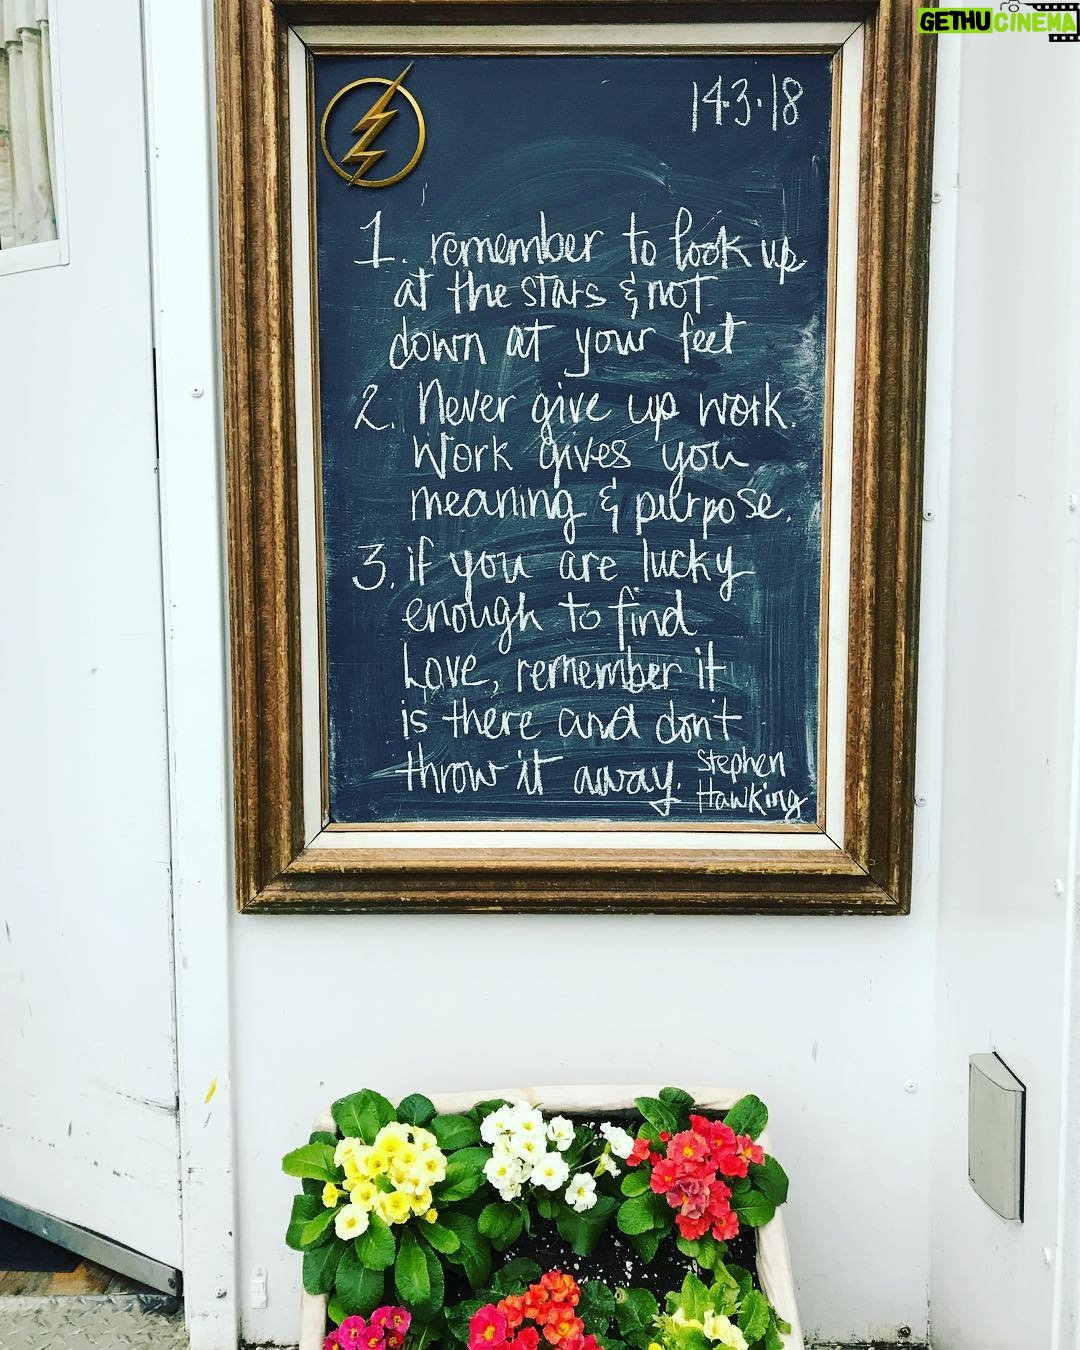 GETHUCINEMA
14.3.18
1. remember to look up
at the stars & not
down at your feet
2. Never give up work.
Work gives you
meaning & purpose.
3. if you are lucky
enough to find
Love, remember it
is there and don't
throw it away.
Stephen
Hawking